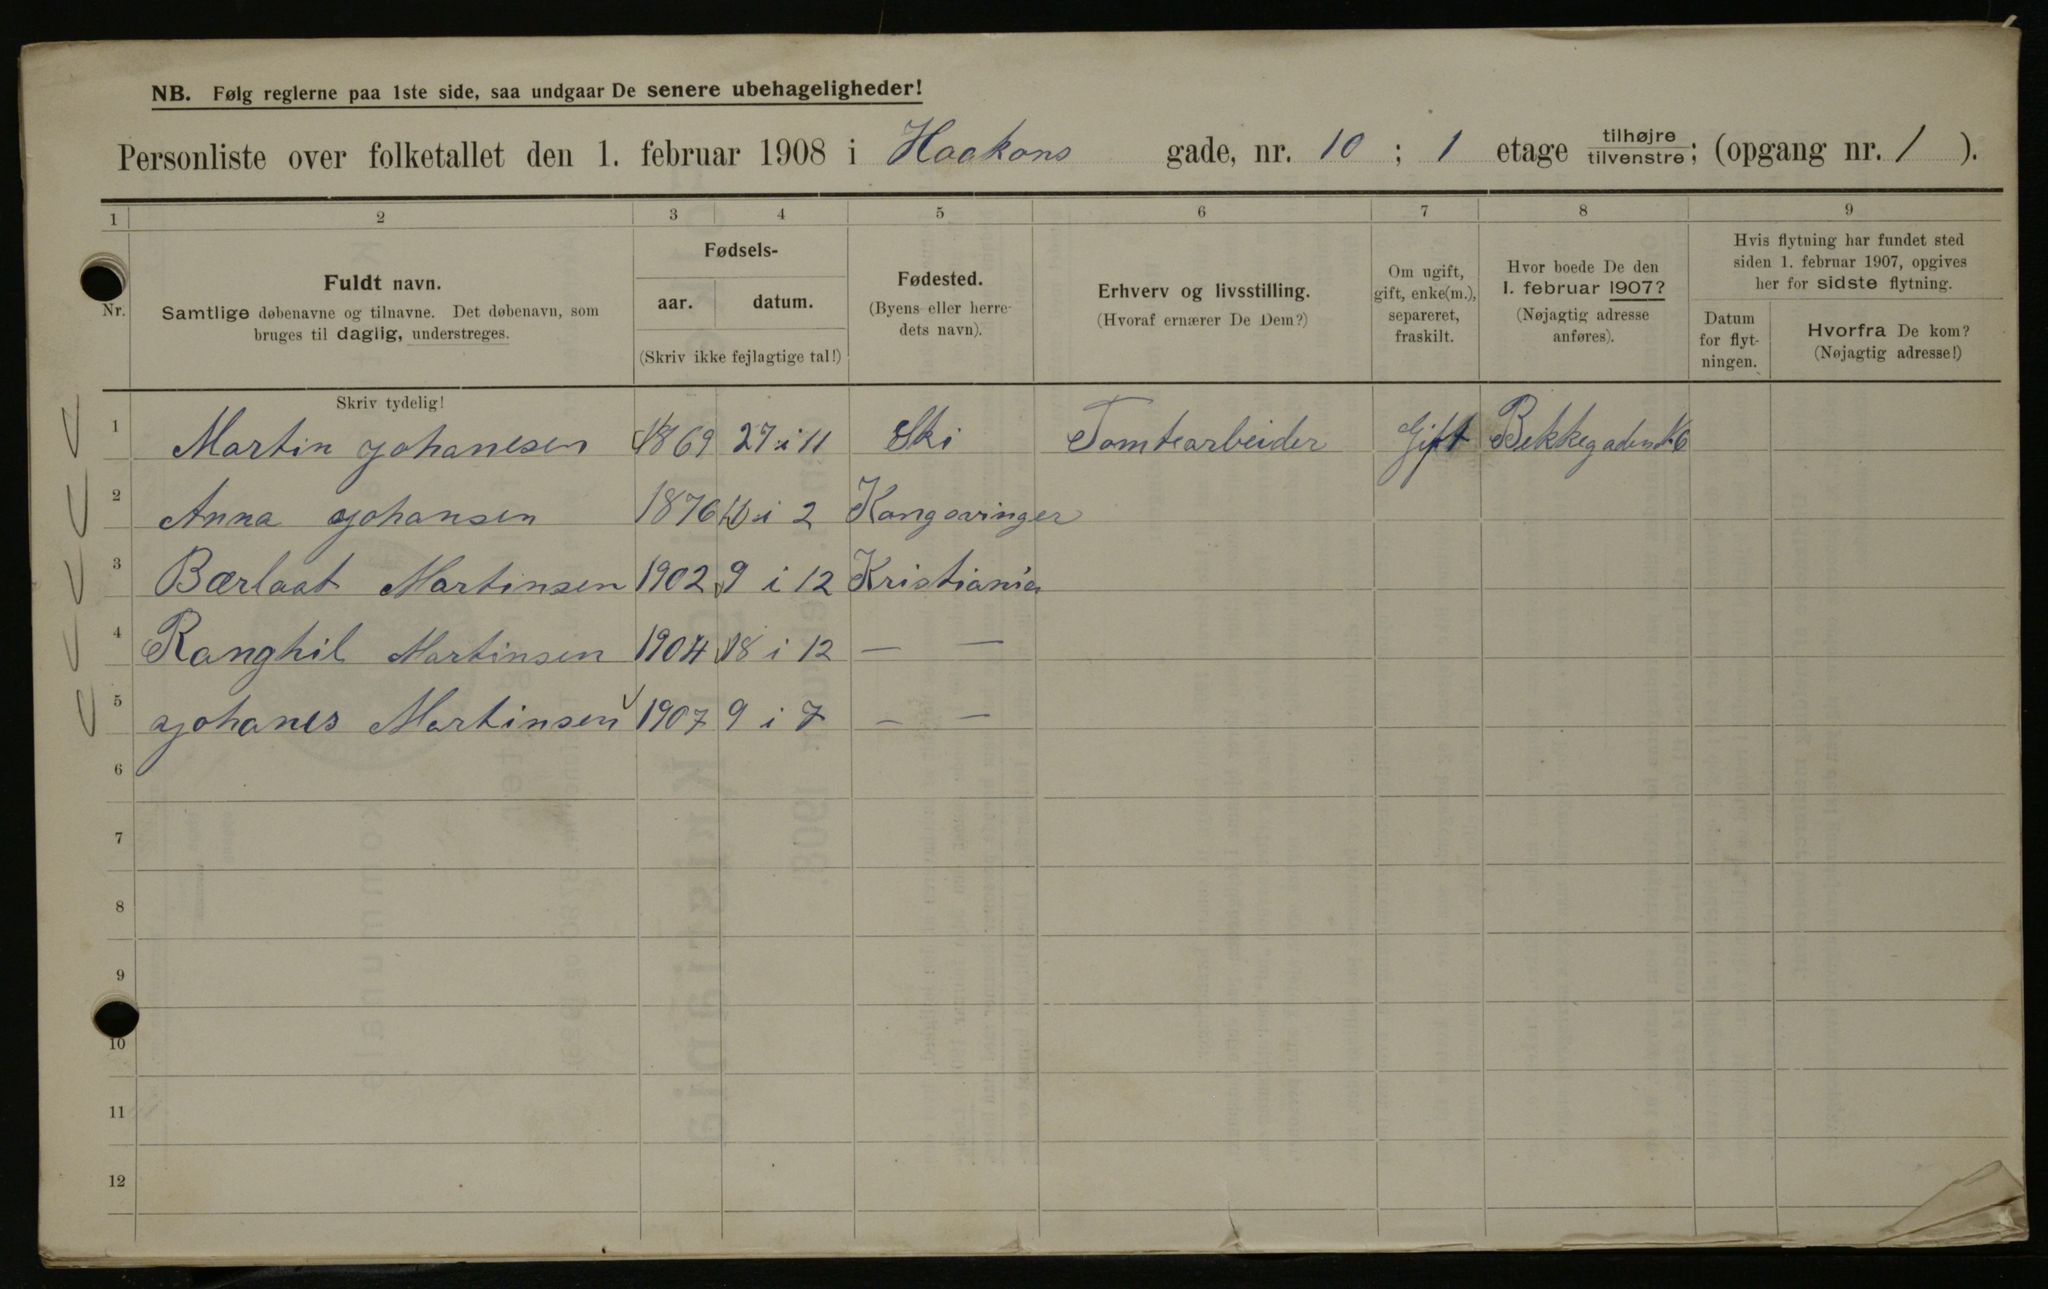 NB. Følg reglerne paa 1ste side, saa undgaar De senere ubehageligheder!
Personliste over folketallet den 1. februar 1908 i Haakons gade, nr. 10 ; 1 etage tilhøjre tilvenstre; (opgang nr. 1 ).
1 2 3 4 5 6 7 8 9
Nr.
Fuldt navn.
Samtlige døbenavne og tilnavne. Det døbenavn, som
bruges til daglig, understreges.
Fødsels-
aar. datum.
(Skriv ikke fejlagtige tal!)
Fødested.
(Byens eller herre-
dets navn).
Erhverv og livsstilling.
(Hvoraf ernærer De Dem?)
Om ugift,
gift, enke(m.),
separeret,
fraskilt.
Hvor boede De den
1. februar 1907?
(Nøjagtig adresse
anføres).
Hvis flytning har fundet sted
siden 1. februar 1907, opgives
her for sidste flytning.
Datum
for flyt-
ningen.
Hvorfra De kom?
(Nøjagtig adresse!)
Skriv tydelig!
1 Martin Johanesen 1869 27 i 11 Ski Tomtearbeider Gift Bekkegaden 16
2 Anna Johansen 1876 10 i 2 Kongsvinger
3 Bærlaat Martinsen 1902 9 i 12 Kristiania
4 Ranghil Martinsen 1904 18 i 12 — —
5 Johanes Martinsen 1907 9 i 7 — —
6
7
8
9
10
11
12